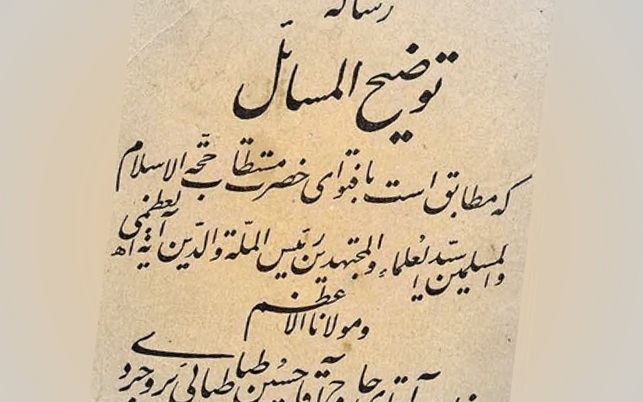 رساله
توضیح المسائل
که مطابق است با فتوای حضرت مستطاب حجّة الاسلام
والمسلمین سیّد العلماء والمجتهدین رئیس الملّة والدّین آیة الله العظمی
ومولانا الاعظم
آقای حاج آقا حسین طباطبائی بروجرد